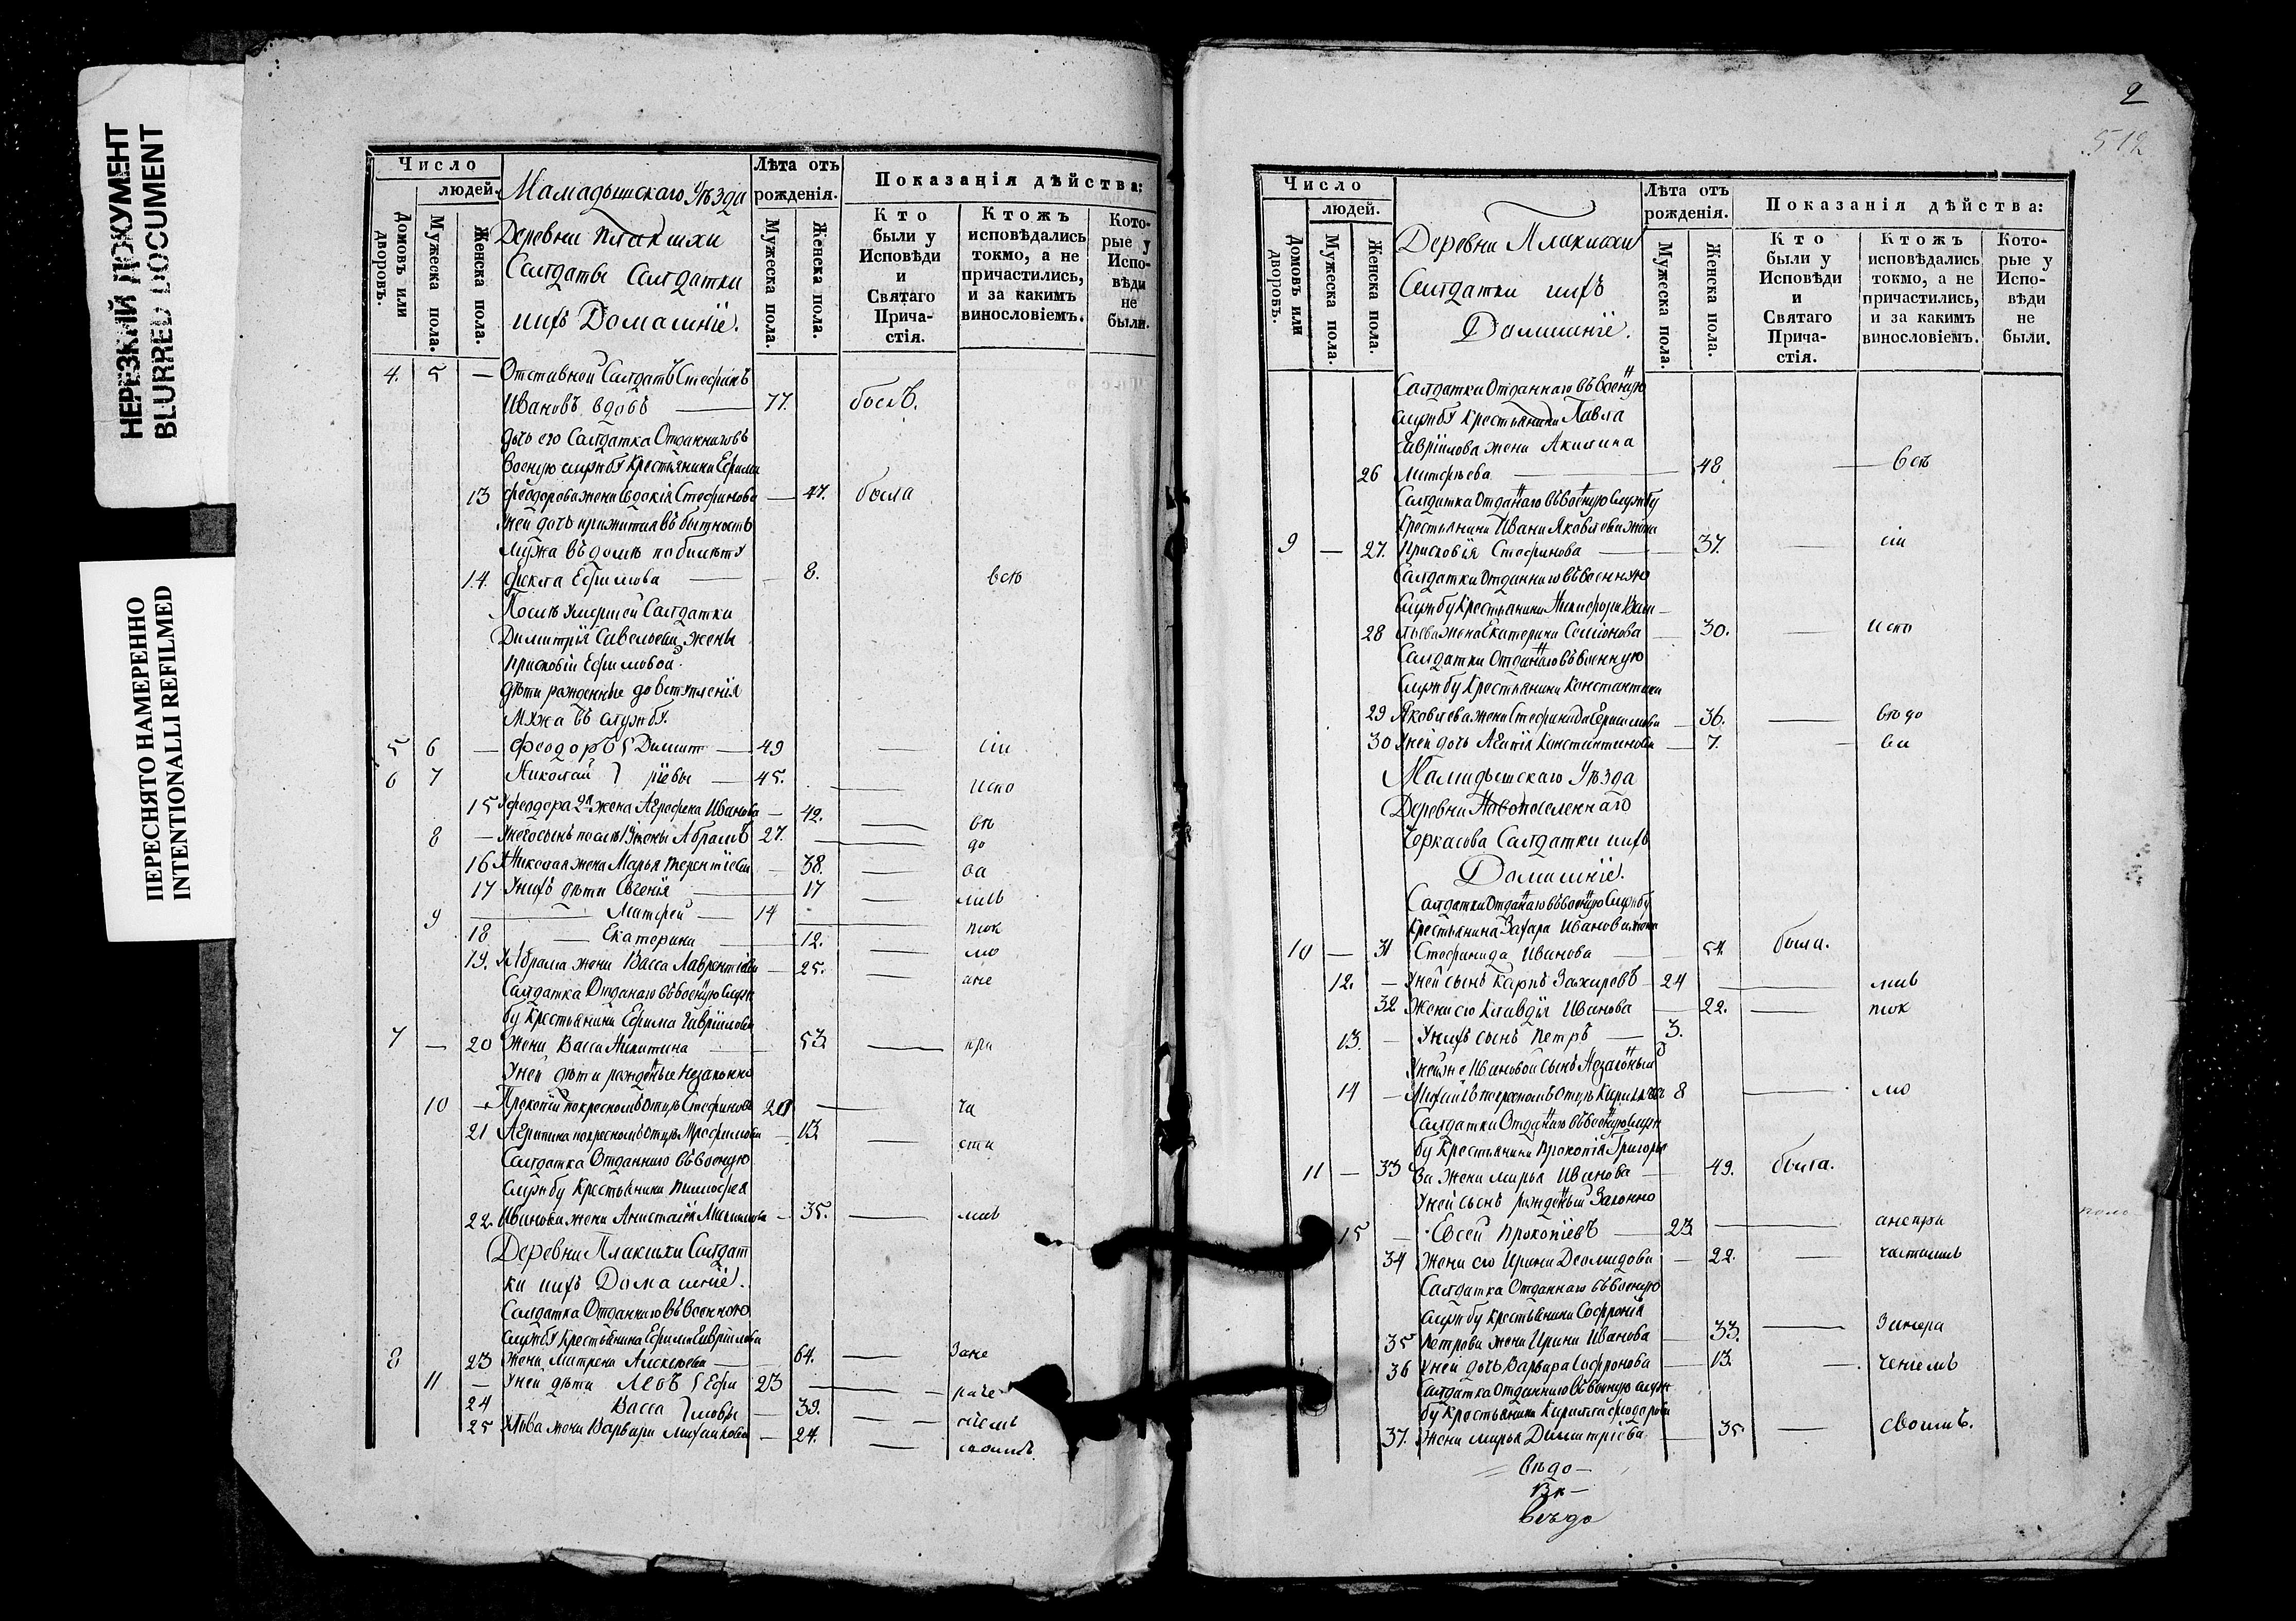 НЕРЕЗКИЙ ДОКУМЕНТ
BLURRED DOCUMENT
ПЕРЕСНЯТО НАМЕРЕННО
INTENTIONALLI REFILMED
Число
людей.
Домовъ или дворовъ.
Мужеска пола.
Женска пола.
Мамадышскаго Уѣзда
Деревни Плакихи
Салдаты Салдатки
ихъ Домашніе.
Лѣта отъ рожденія.
Мужеска пола.
Женска пола.
Показанія дѣйства:
Кто были у Исповѣди и Святаго Причастія.
Ктожъ исповѣдались токмо, а не причастились, и за какимъ винословіемъ.
Которые у Исповѣди не были.
4. 5 — Отставной Салдатъ Стефанъ
Ивановъ вдовъ — 77. былъ.
дочь его Салдатка Отданнаго въ
военую службу Крестьянина Ефима
13 Феодорова жена Евдокія Стефанова — 47. была
Уней дочь прижитая въ бытность
мужа въ домѣ по билету
14. Фекла Ефимова — 8. всѣ
Послѣ умершей Салдатки
Димитрія Савельева жены
Прасковіи Ефимовой
дѣти рожденные до вступленія
мужа въ службу.
5 6 — Феодоръ Димит — 49 — сіи
6 7 Николай ріевы — 45. — испо
15 Феодора 2я жена Агрофена Иванова — 42. — вѣ
8 — Унего сынъ послѣ 1й жены Абрамъ 27. — до
16 Николая жена Марья Терентіева — 38. — ва
17 Унихъ дѣти Евгенія — 17 — лись
9 — Матфей — 14 — ток
18 — Екатерина — 12. — мо
19. Абрама жена Васса Лаврентіева — 25. — ане
Салдатка Отданаго въ военую служ
бу Крестьянина Ефима Гавріилова
7 — 20 Жена Васса Никитина — 53. — при
Уней дѣти рожденые незаконно
10 — Прокопій по кресномъ отцѣ Стефановъ 20 — ча
21 Агрипина по кресномъ отцѣ — 13. — сти
Салдатка Отданнаго въ военую
службу Крестьянина
22. Иванова жена Анастасія — 35. — лись
Деревни Плакихи Салдат
ки ихъ Домашніе.
Салдатка Отданнаго въ военною
службу Крестьянина Ефима Гавріилова
8 23 Жена Матрена Алексеева — 64. — Зане
11 — Уней дѣти Левъ Ефи 23 —
24 Васса мовы — 39. —
25 Льва жена Варвара Михайлова — 24. — своимъ.
2
512
Число
людей.
Домовъ или дворовъ.
Мужеска пола.
Женска пола.
Деревни Плакихи
Салдатки ихъ
Домашніе.
Лѣта отъ рожденія.
Мужеска пола.
Женска пола.
Показанія дѣйства:
Кто были у Исповѣди и Святаго Причастія.
Ктожъ исповѣдались токмо, а не причастились, и за какимъ винословіемъ.
Которые у Исповѣди не были.
Салдатки Отданнаго въ военую
службу Крестьянина Павла
Гавріилова жена Акилина
26 Матфѣева — 48 — всѣ
Салдатка Отданаго въ военую службу
Крестьянина Ивана Яковлева жена
9 — 27. Прасковія Стефанова — 37. — сіи
Салдатки Отданнаго въ военную
службу Крестьянина Никифора Васи
28 льева жена Екатерина Семіонова — 30. — испо
Салдатки Отданаго въ военную
службу Крестьянина Константина
29 Яковлева жена Стефанида — 36. — вѣдо
30 Уней дочь Агатія Константинова — 7. — ва
Мамадышскаго Уѣзда
Деревни Новопоселеннаго
Черкасова Салдатки ихъ
Домашніе.
Салдатки Отданаго въ военую службу
Крестьянина Захара Иванова жена
10 — 31 Стефанида Иванова — 54 была.
12. — Уней сынъ Карпъ Захаровъ — 24 — лись
32 Жена его Клавдія Иванова — 22. — ток
13. — Унихъ сынъ Петръ — 3.
14 — 8 — мо
Салдатки Отданаго въ военую служ
бу Крестьянина Прокопія Григорье
11 — 33 ва жена Марья Иванова — 49. была.
Уней сынъ рожденый Законно
15 — Евсей Прокопіевъ — 23 — анепри
34 Жена его Ирина Деомидова — 22. — частились
Салдатка Отданнаго въ военую
службу Крестьянина Софронія
35 Петрова жена Ирина Иванова — 33. —
36 Уней дочь Варвара Софронова — 13. —
Салдатка Отданнаго въ военую служ
бу Крестьянина Кирилла Феодорова
37. Жена Марья Димитріева — 35 — своимъ.